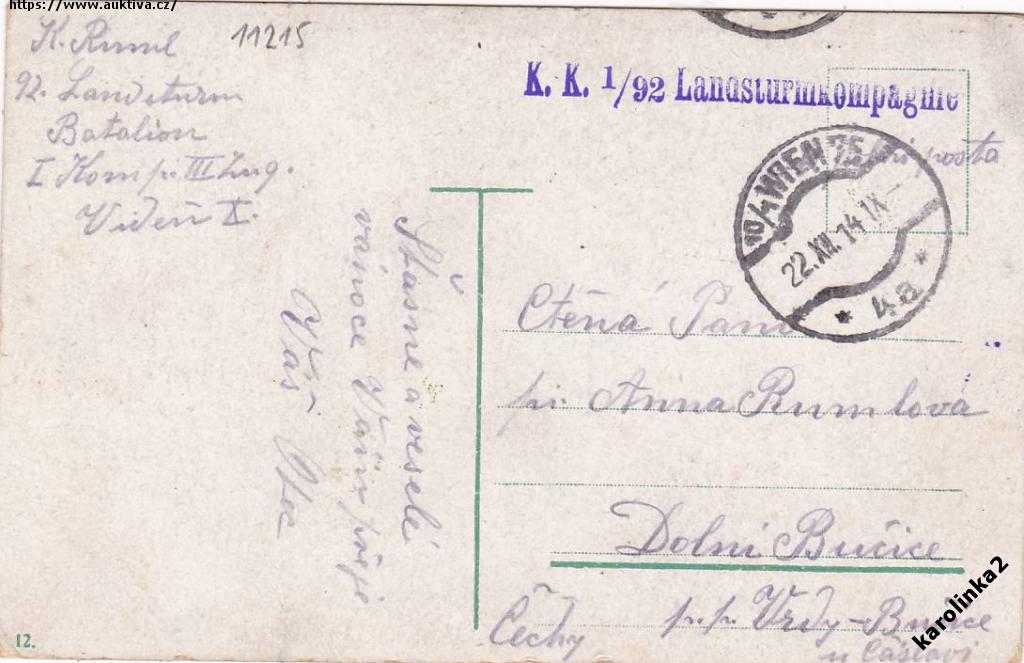 https://www.auktiva.cz/
11215
K. Ruml
92. Landsturm
Batalion
I Komp. III Zug.
Videň X.
K. K. 1/92 Landsturmkompagnie
pošta
10/4 WIEN 75
22.XII.14
* 4a *
Šťasné a veselé
vánoce Vám přeje
Váš Otec
Ctěná Paní
pí. Anna Rumlová
Dolní Bučice
p.p. Vrdy-Bučice
u Čáslavi
Čechy
12.
karolinka2